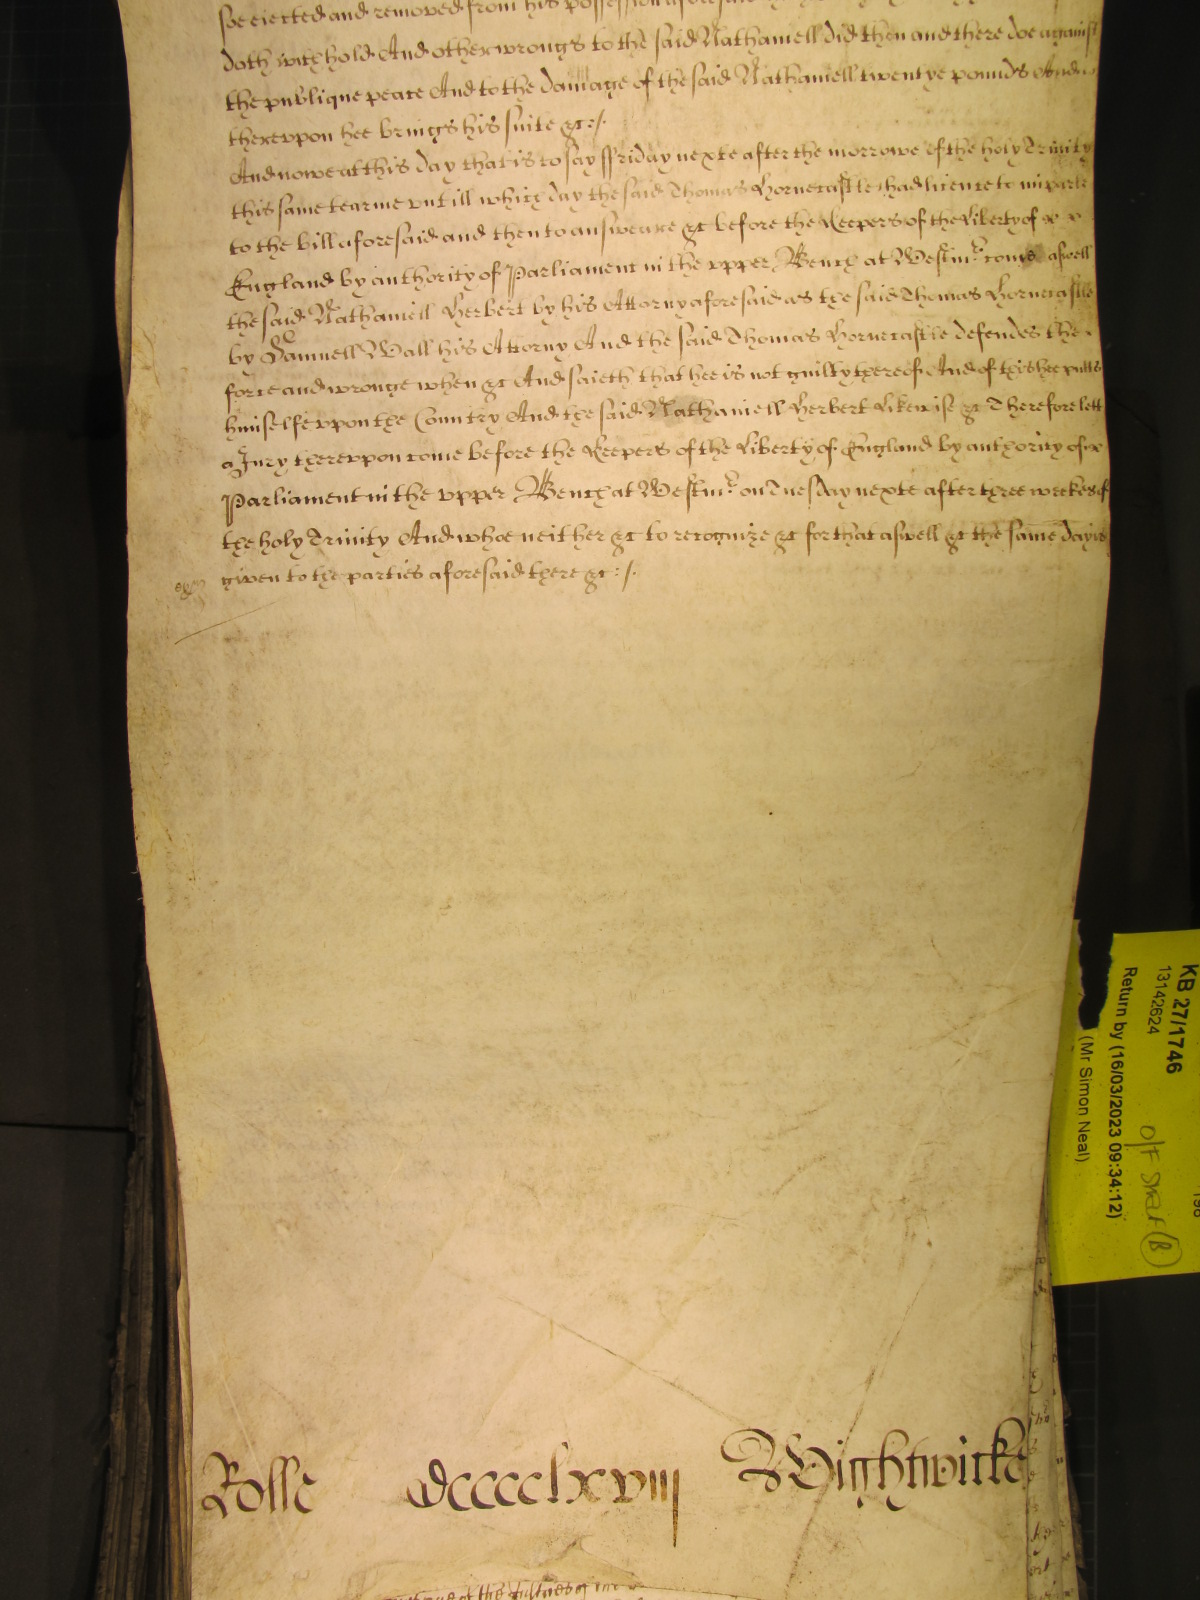 soe ejected and removed from his possession aforesaid
doth withhold And other wrongs to the said Nathaniell did then and there doe against
the publique peace And to the damage of the said Nathaniell twentye pounds And
thereupon hee brings his suite &c:/.
And nowe at this day that is to say ffriday nexte after the morrowe of the holy Trinity
this same tearme untill which day the said Thomas Hornecastle had licence to imparle
to the bill aforesaid and then to answeare &c before the Keepers of the Liberty of x x
England by authority of Parliament in the upper Bench at Westmr come aswell
the said Nathaniell Herbert by his Attorny aforesaid as the said Thomas Hornecastle
by Samuell Wall his Attorny And the said Thomas Hornecastle defendes the
force and wronge when &c And saieth that hee is not guilty thereof And of this hee putts
himselfe upon the Country And the said Nathaniell Herbert Likewise &c Therefore lett
a Jury thereupon come before the Keepers of the Liberty of England by authority of x
Parliament in the upper Bench at Westmr on Tuesday nexte after three weekes of
the holy Trinity And whoe neither &c to recognize &c for that aswell &c the same day is
given to the parties aforesaid there &c:/.
Rolle dcccclxviiij Wightwicke
of the
KB 27/1746
13142624
Return by (16/03/2023 09:34:12)
(Mr Simon Neal)
O/F
B
198